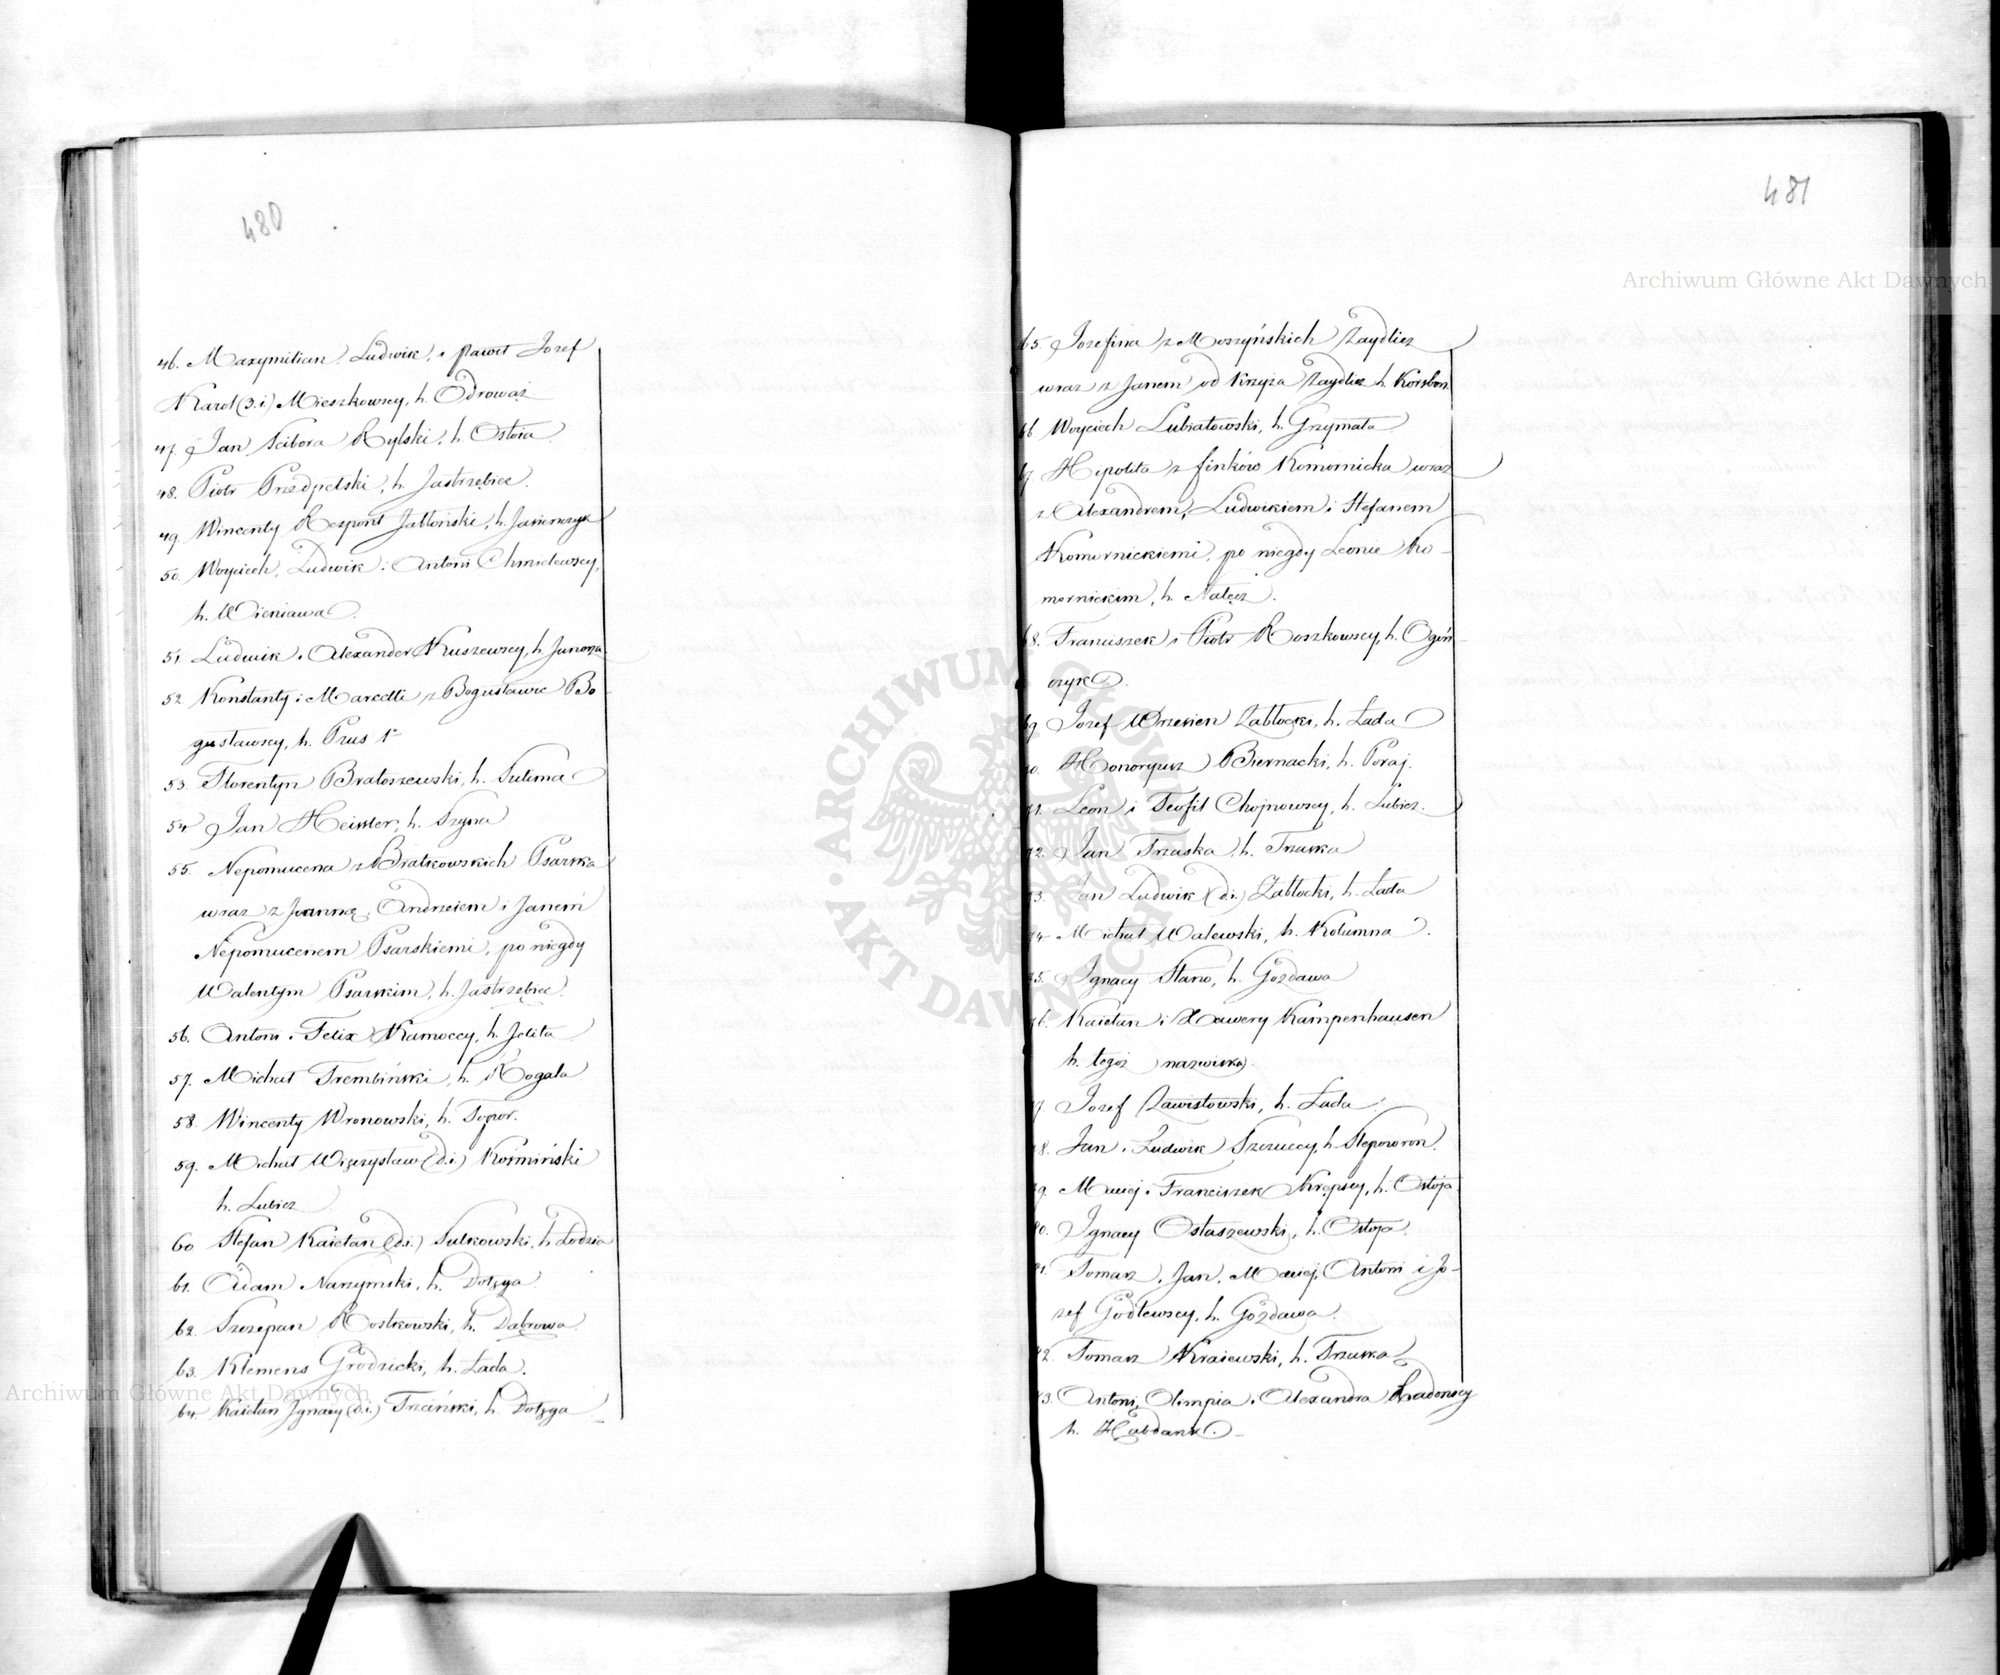 480
46. Maxymilian, Ludwik, i Paweł Jozef
Karol (3. i.) Mieszkowscy, h. Odrowąż
47. Jan Scibora Rylski, h. Ostoia
48. Piotr Przedpełski, h. Jastrzębiec.
49. Wincenty Respont Jabłoński, h. Jasienczyk
50. Woyciech, Ludwik i Antoni Chmielewscy,
h. Wieniawa.
51. Ludwik i Alexander Kuszewscy, h. Junosza
52 Konstanty i Marcelli z Bogusławic Bo
gusławscy, h. Prus 1º
53. Florentyn Bratoszewski, h. Sulima
54 Jan Heisler, h. Szyna
55. Nepomucena z Bratkowskich Psarska
wraz z Joanną, Andrzeiem i Janem
Nepomucenem Psarskiemi, po niegdy
Walentym Psarskim, h. Jastrzębiec.
56. Antoni i Felix Kamoccy, h. Jelita
57. Michał Trembiński, h. Rogala
58. Wincenty Wronowski, h. Topor.
59. Michał Mięczysław (d. i.) Koźmiński
h. Lubicz
60 Stefan Kaietan (d. i.) Sulkowski, h. Łodzia
61. Adam Narzymski, h. Dołęga
62. Szczepan Rostkowski, h. Dąbrowa
63. Klemens Grodzicki, h. Łada.
64. Kaietan Ignacy (d. i.) Trzciński, h. Dołęga
481
65 Jozefina z Moszyńskich Zaydlicz
wraz z Janem od Krzyża Zaydlicz h. Korzbok
66 Woyciech Lubiatowski, h. Grzymała
67 Hipolita z Finków Komornicka wraz
z Alexandrem, Ludwikiem i Stefanem
Komornickiemi, po niegdy Leonie Ko-
mornickim, h. Nałęcz.
68. Franciszek i Piotr Roszkowscy, h. Ogoń
czyk.
69 Jozef Wrzesień Zabłocki, h. Łada
70. Honoryusz Biernacki, h. Poraj.
71. Leon i Teofil Chojnowscy, h. Lubicz.
72. Jan Trzaska, h. Trzaska
73. Jan Ludwik (d. i.) Zabłocki, h. Łada
74 Michał Walewski, h. Kolumna.
75. Ignacy Stano, h. Gozdawa
76. Kaietan i Xawery Kampenhausen
h. tegoż nazwiska.
77. Jozef Zawistowski, h. Łada.
78. Jan i Ludwik Szczuccy, h. Slepowron.
79. Maciej i Franciszek Krępscy, h. Ostoja
80. Ignacy Ostaszewski, h. Ostoja.
81. Tomasz, Jan, Maciej, Antoni i Jo-
zef Godlewscy, h. Gozdawa.
82. Tomasz Kraiewski, h. Trzaska
83. Antoni, Olimpia i Alexandra Radonscy
h. Habdank.
Archiwum Główne Akt Dawnych
ARCHIWUM GŁÓWNE
AKT DAWNYCH
Archiwum Główne Akt Dawnych